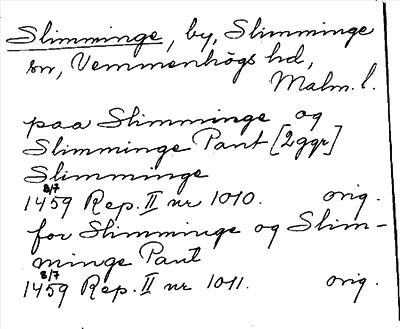 Slimminge, by, Slimminge
sn, Vemmenhögs hd,
Malm. l.
paa Slimminge og
Slimminge Pant [2ggr]
Slimminge
8/7
1459 Rep. II nr 1010. orig.
for Slimminge og Slim-
minge Pant
8/7
1459 Rep. II nr 1011. orig.